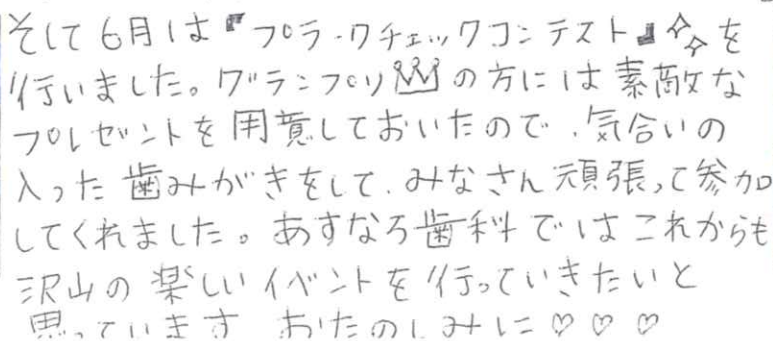 そして6月は『プラークチェックコンテスト』✨を
行いました。グランプリ👑の方には素敵な
プレゼントを用意しておいたので、気合いの
入った歯みがきをして、みなさん頑張って参加
してくれました。あすなろ歯科ではこれからも
沢山の楽しいイベントを行っていきたいと
思っています おたのしみに♡♡♡